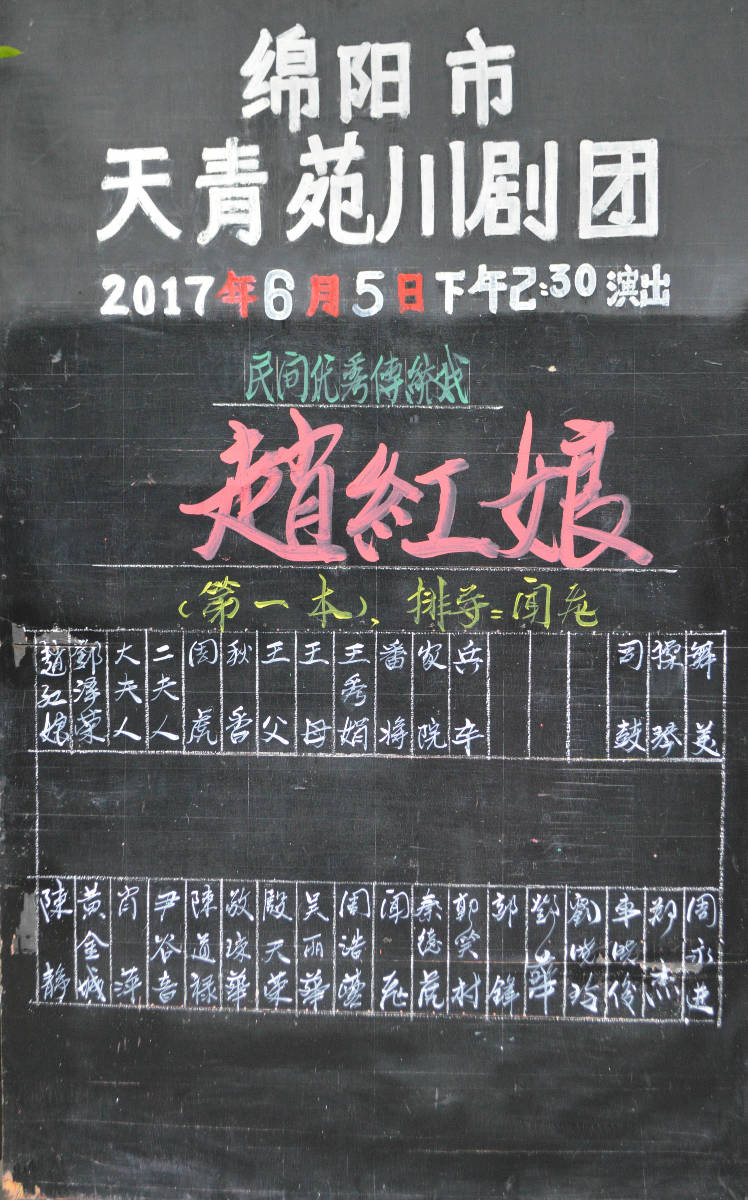 绵阳市
天青苑川剧团
2017年6月5日下午2:30演出
民间优秀傳統戏
趙紅娘
(第一本)、排导:闻
趙红娘
鄧澤荣
大夫人
二夫人
周虎
秋香
王父
王母
王秀娟
番将
家院
兵卒
司鼓
操琴
舞美
陳静
黄金城
肖萍
尹谷音
陳道禄
敬咏華
殷天荣
吴丽華
周浩
闻
秦德
郭笑村
郭锋
鄧華
劉晓玲
车晓俊
郑杰
周永进